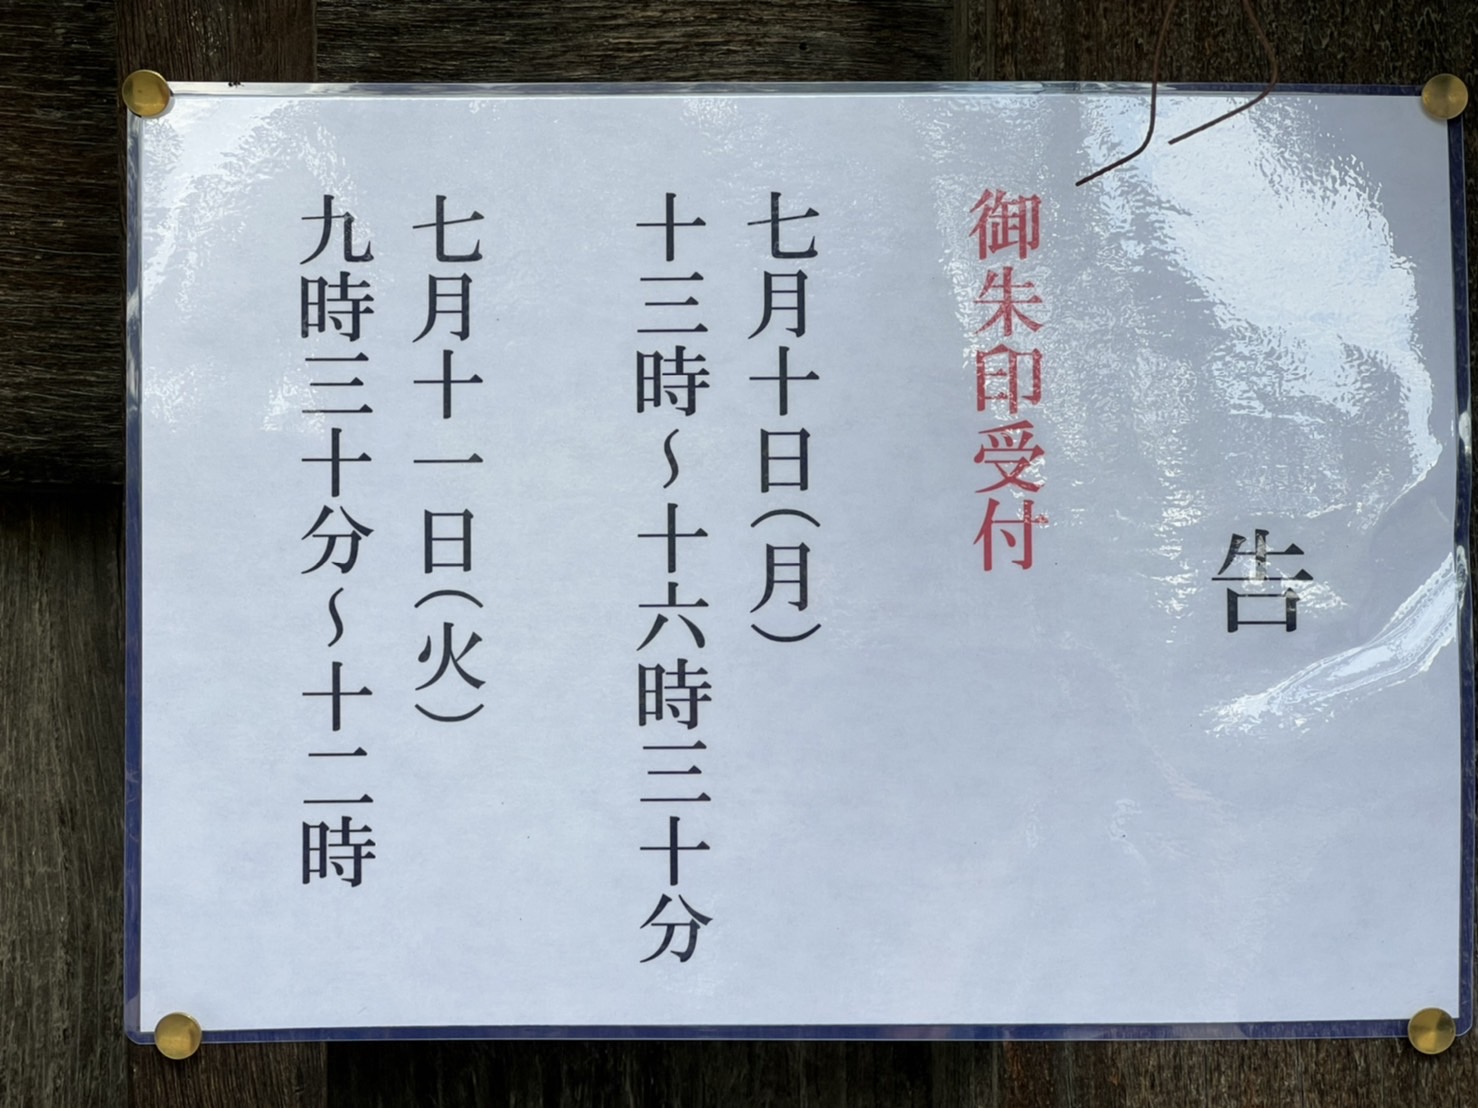 告
御朱印受付
七月十日（月）
十三時〜十六時三十分
七月十一日（火）
九時三十分〜十二時